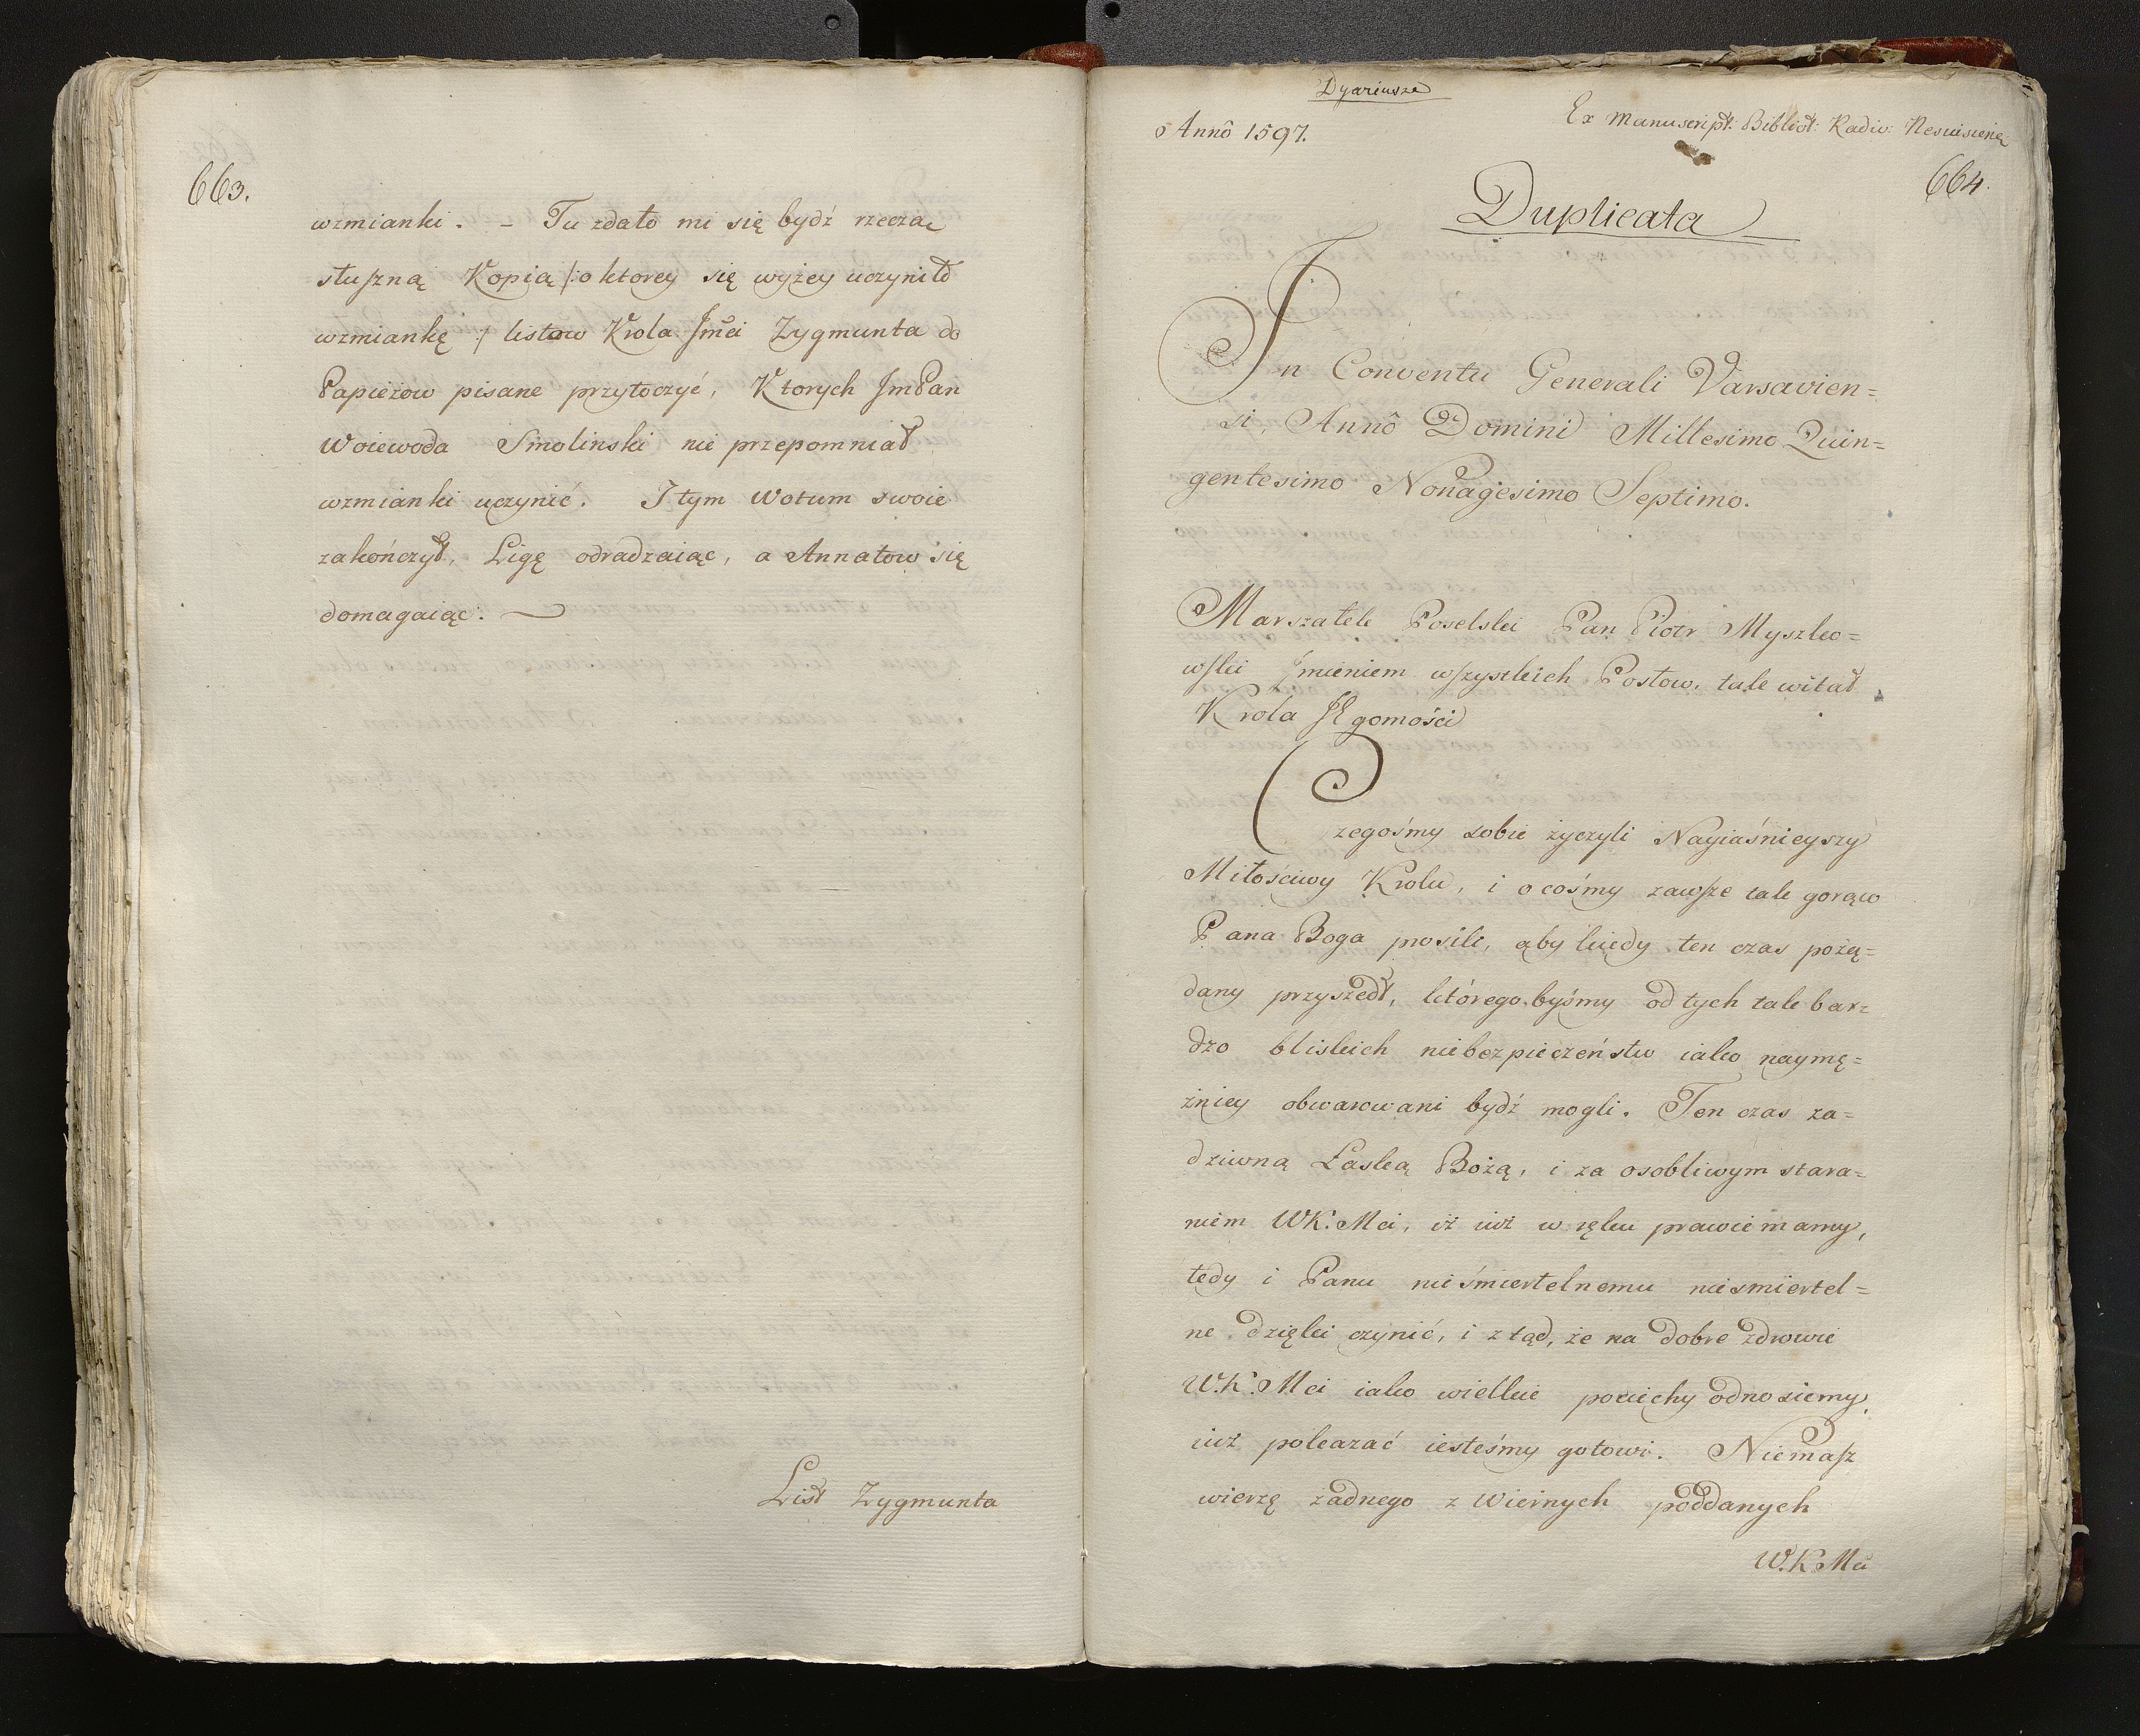 663.
wzmianki. – Tu zdało mi się bydź rzeczą
słuszną Kopią /: o ktorey się wyżey uczyniło
wzmiankę :/ listow Krola Jmci Zygmunta do
Papieżow pisane przytoczyć, Ktorych JmPan
Woiewoda Smolinski nie przepomniał
wzmianki uczynić. I tym Wotum swoie
zakończył, Ligę odradzaiąc, a Annatow się
domagaiąc. —
List Zygmunta
Dyariusze
Annô 1597.
Ex Manuscript: Bibliot: Radiv: Nesvisien
664.
Duplicata
In Conventu Generali Varsavien=
si, Annô Domini Millesimo Quin=
gentesimo Nonagesimo Septimo.
Marszałek Poselski Pan Piotr Myszko=
wski Jmieniem wszystkich Posłow, tak witał
Krola JEgomości
Czegośmy sobie życzyli Nayiaśnieyszy
Miłościwy Krolu, i o cośmy zawsze tak gorąco
Pana Boga prosili, aby kiedy ten czas pożą=
dany przyszedł, którego byśmy od tych tak bar=
dzo bliskich niebezpieczeństw iako naymę=
żniey obwarowani bydź mogli. Ten czas za=
dziwną Łaską Bożą, i za osobliwym stara=
niem WK. Mci, iż iuż w ręku prawie mamy,
tedy i Panu nieśmiertelnemu niesmiertel=
ne dzięki czynić, i ztąd, że na dobre zdrowie
W.K. Mci iako wielkie pociechy odnosiemy,
iuż pokazać iesteśmy gotowi. Niemasz
wierzę żadnego z Wiernych poddanych
W.K Mci